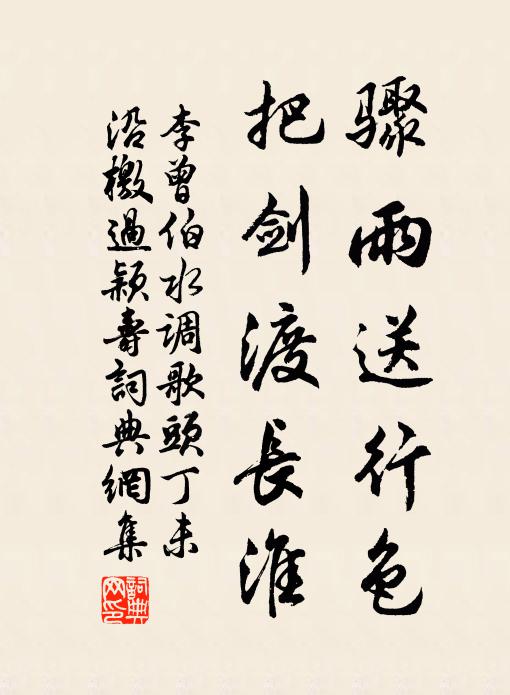 骤雨送行色
把剑渡長淮
李曾伯水调歌頭丁未
沿檄過颖壽詞典網集
詞典網印